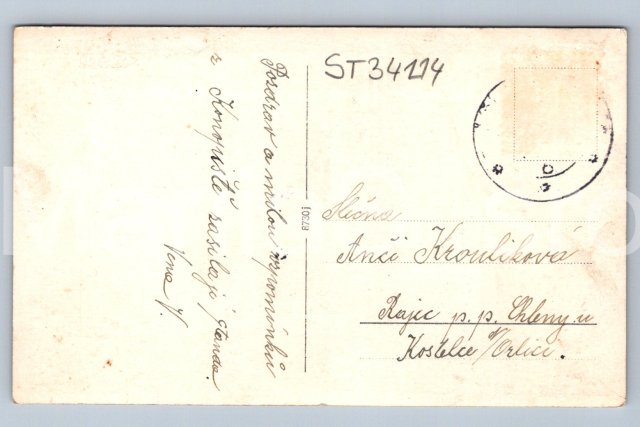 Pozdrav a milou vzpomínku
z Konopiště zasílají Standa.
ST34114
87301
Slečna
Anči Kroulíková
Rájic p. p. Chleny u
Kostelce n/Orlicí.